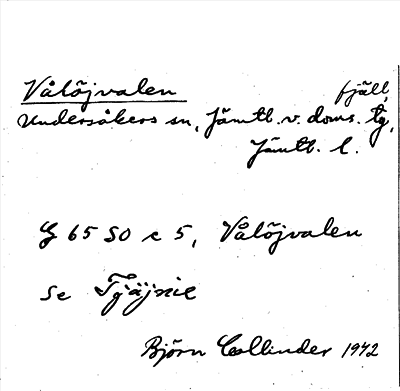 Vålöjvalen fjäll,
Undersåkers sn, Jämtl. v. doms. tg,
Jämtl. l.
G 65 SO c 5, Vålöjvalen
se Tjäjnie
Björn Collinder 1972